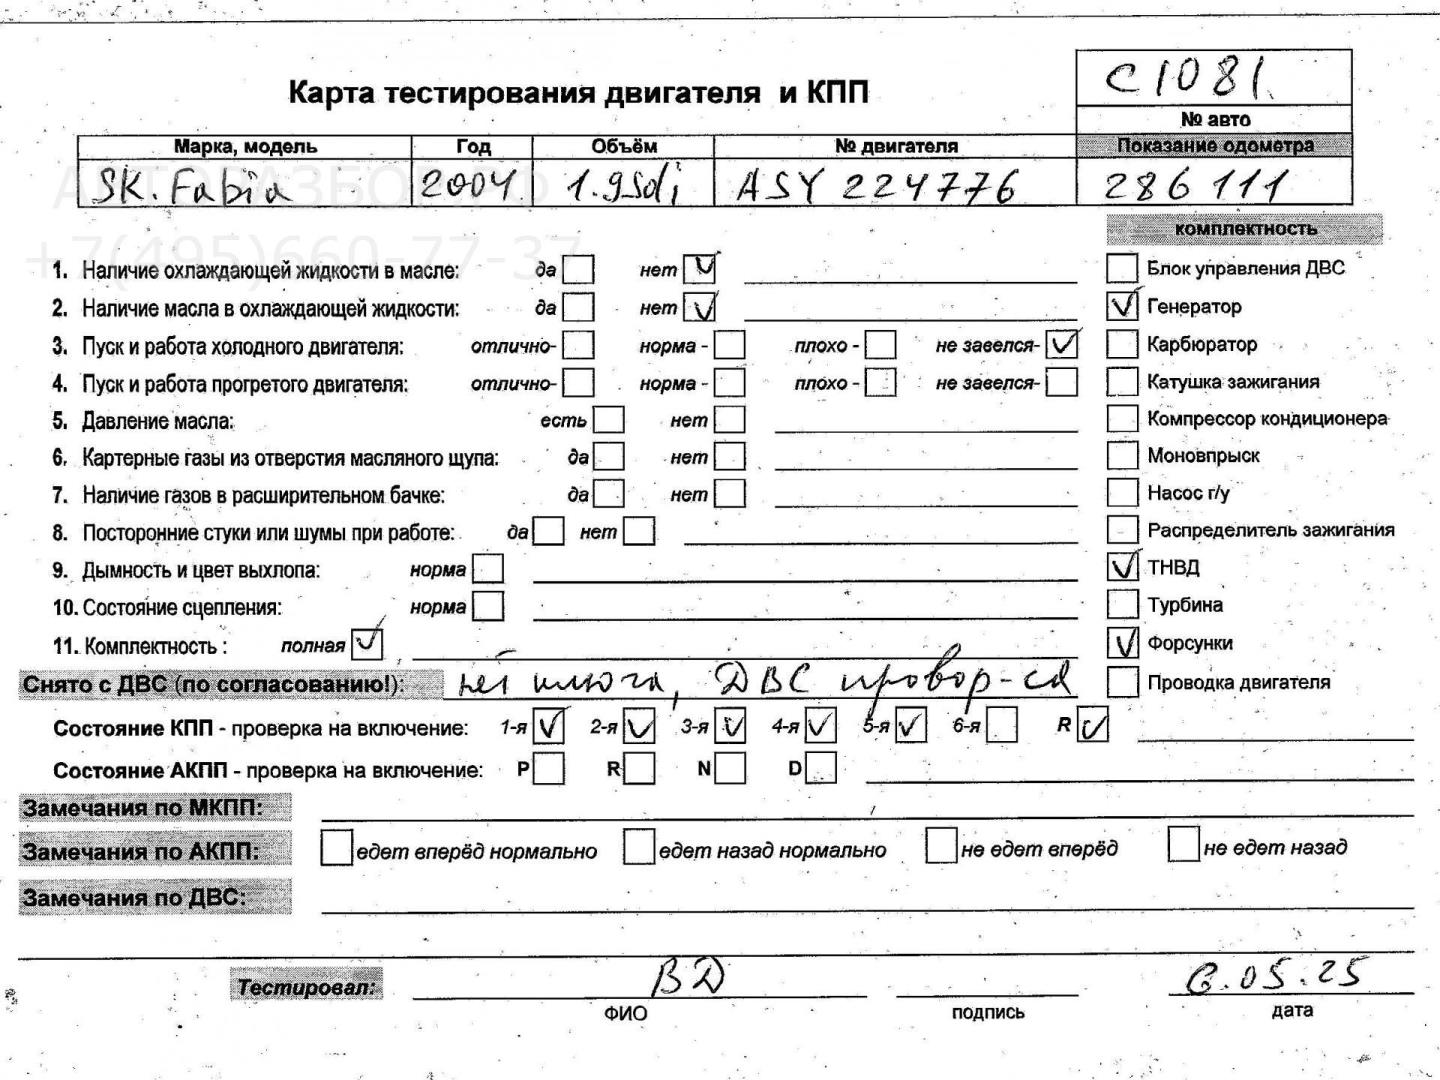 С1081
Карта тестирования двигателя и КПП
№ авто
Марка, модель Год Объём № двигателя Показание одометра
SK. Fabia 2004 1.9Sdi ASY 224776 286 111
+7(495)660-77-37
комплектность
1. Наличие охлаждающей жидкости в масле: да нет Блок управления ДВС
2. Наличие масла в охлаждающей жидкости: да нет Генератор
3. Пуск и работа холодного двигателя: отлично- норма - плохо - не завелся- Карбюратор
4. Пуск и работа прогретого двигателя: отлично- норма - плохо - не завелся- Катушка зажигания
5. Давление масла: есть нет Компрессор кондиционера
6. Картерные газы из отверстия масляного щупа: да нет Моновпрыск
7. Наличие газов в расширительном бачке: да нет Насос г/у
8. Посторонние стуки или шумы при работе: да нет Распределитель зажигания
9. Дымность и цвет выхлопа: норма ТНВД
10. Состояние сцепления: норма Турбина
11. Комплектность : полная Форсунки
Снято с ДВС (по согласованию!): нет ключа, ДВС провор-ся Проводка двигателя
Состояние КПП - проверка на включение: 1-я 2-я 3-я 4-я 5-я 6-я R
Состояние АКПП - проверка на включение: P R N D
Замечания по МКПП:
Замечания по АКПП: едет вперёд нормально едет назад нормально не едет вперёд не едет назад
Замечания по ДВС:
Тестировал: ВД 6.05.25
ФИО подпись дата